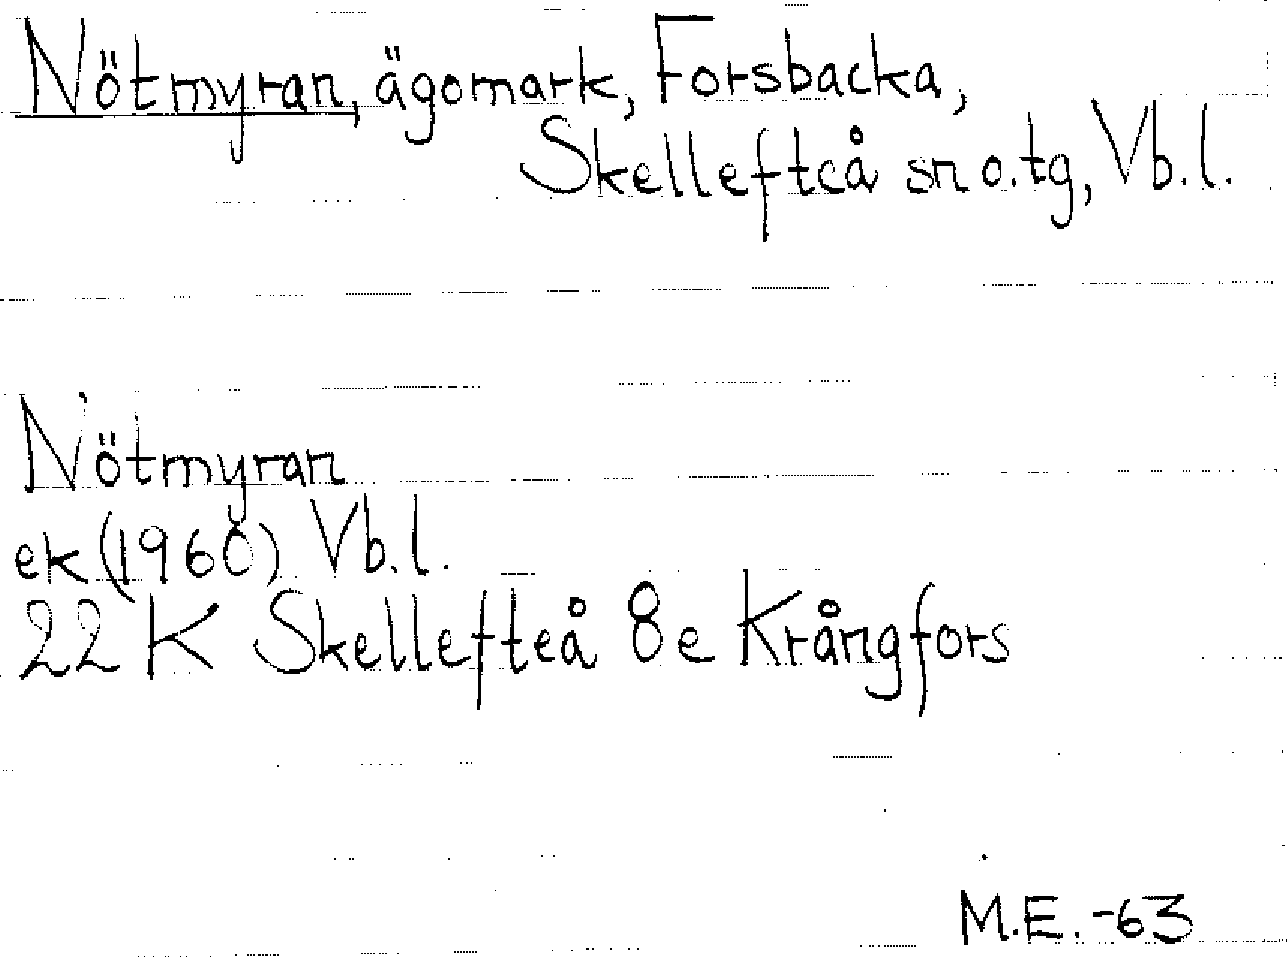 Nötmyran, ägomark, Forsbacka,
Skellefteå sn o. tg, Vb. l.
Nötmyran
ek (1960) Vb. l.
22 K Skellefteå 8 e Krångfors
M.E. -63